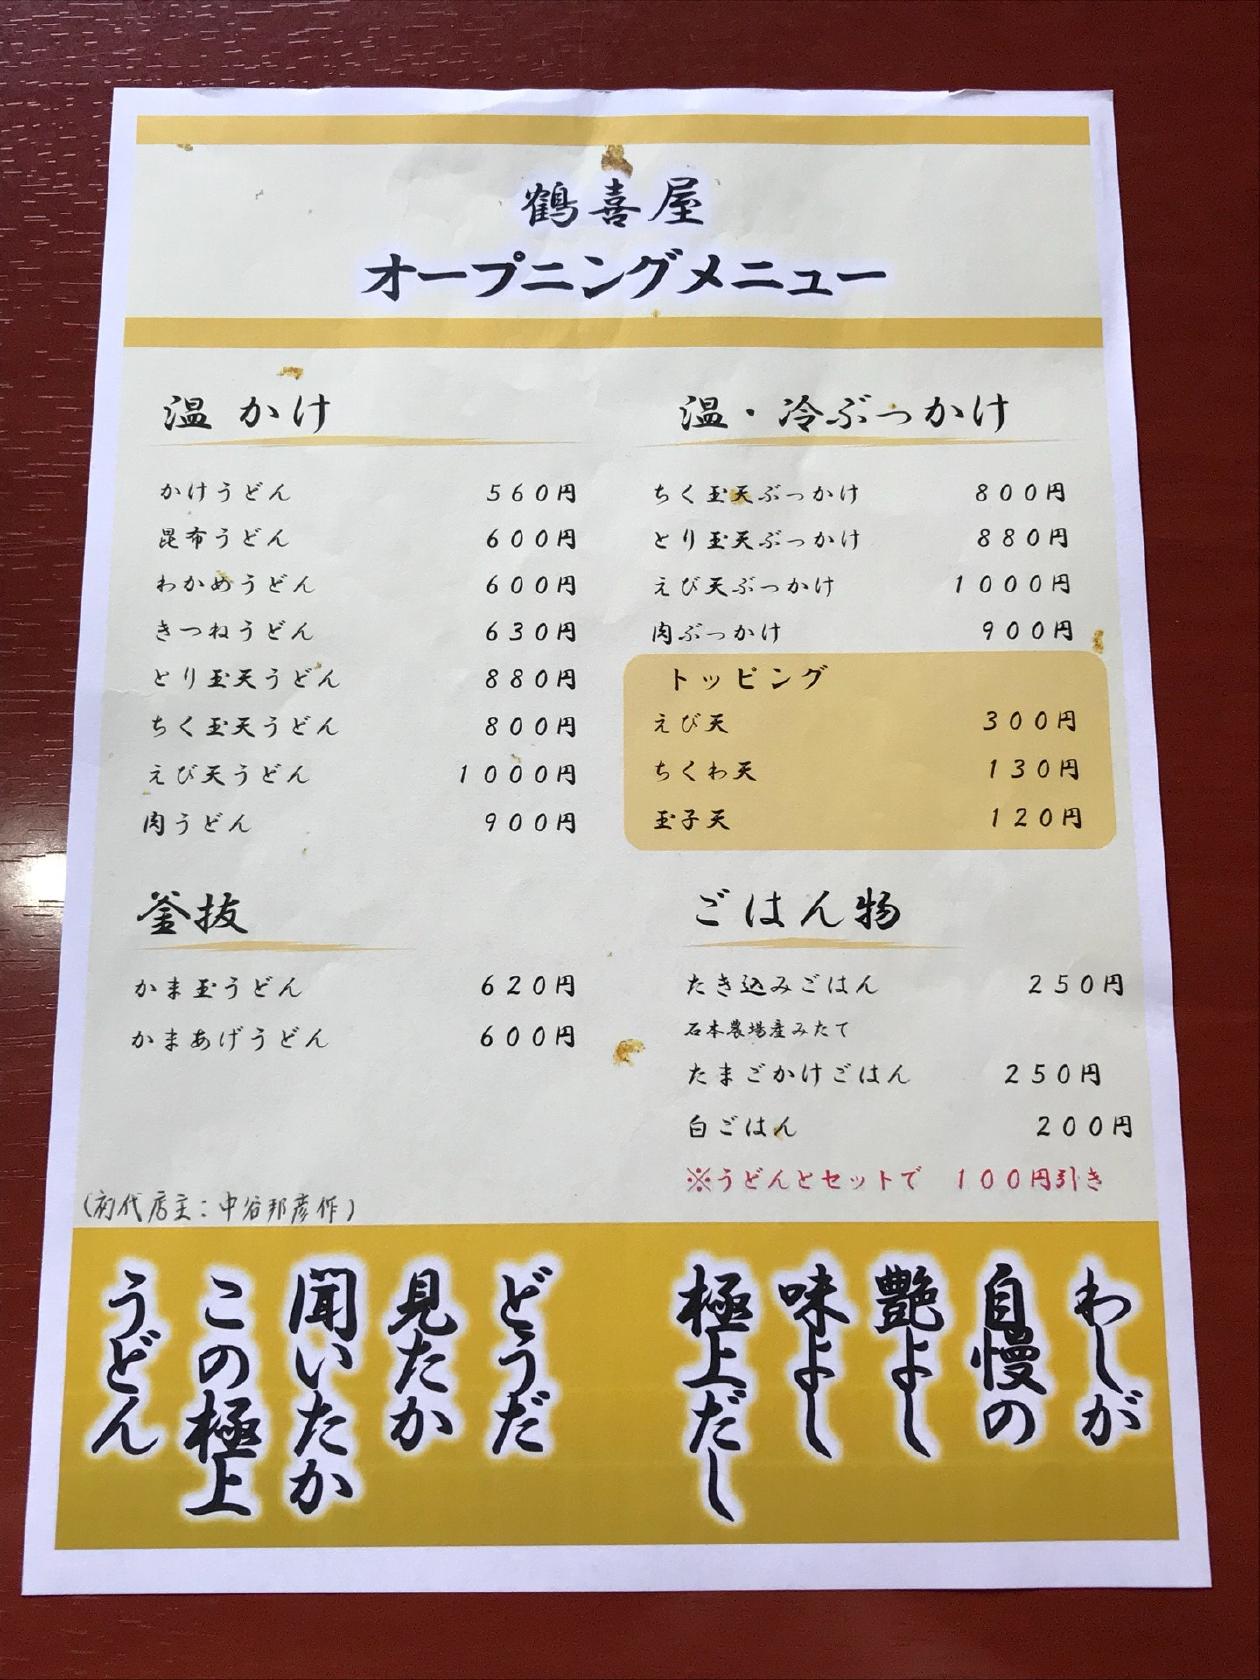 鶴喜屋
オープニングメニュー
温 かけ
かけうどん 560円
昆布うどん 600円
わかめうどん 600円
きつねうどん 630円
とり玉天うどん 880円
ちく玉天うどん 800円
えび天うどん 1000円
肉うどん 900円
釜抜
かま玉うどん 620円
かまあげうどん 600円
温・冷ぶっかけ
ちく玉天ぶっかけ 800円
とり玉天ぶっかけ 880円
えび天ぶっかけ 1000円
肉ぶっかけ 900円
トッピング
えび天 300円
ちくわ天 130円
玉子天 120円
ごはん物
たき込みごはん 250円
石本農場産みたて
たまごかけごはん 250円
白ごはん 200円
※うどんとセットで 100円引き
(初代店主：中谷邦彦作)
わしが
自慢の
艶よし
味よし
極上だし
どうだ
見たか
聞いたか
この極上
うどん